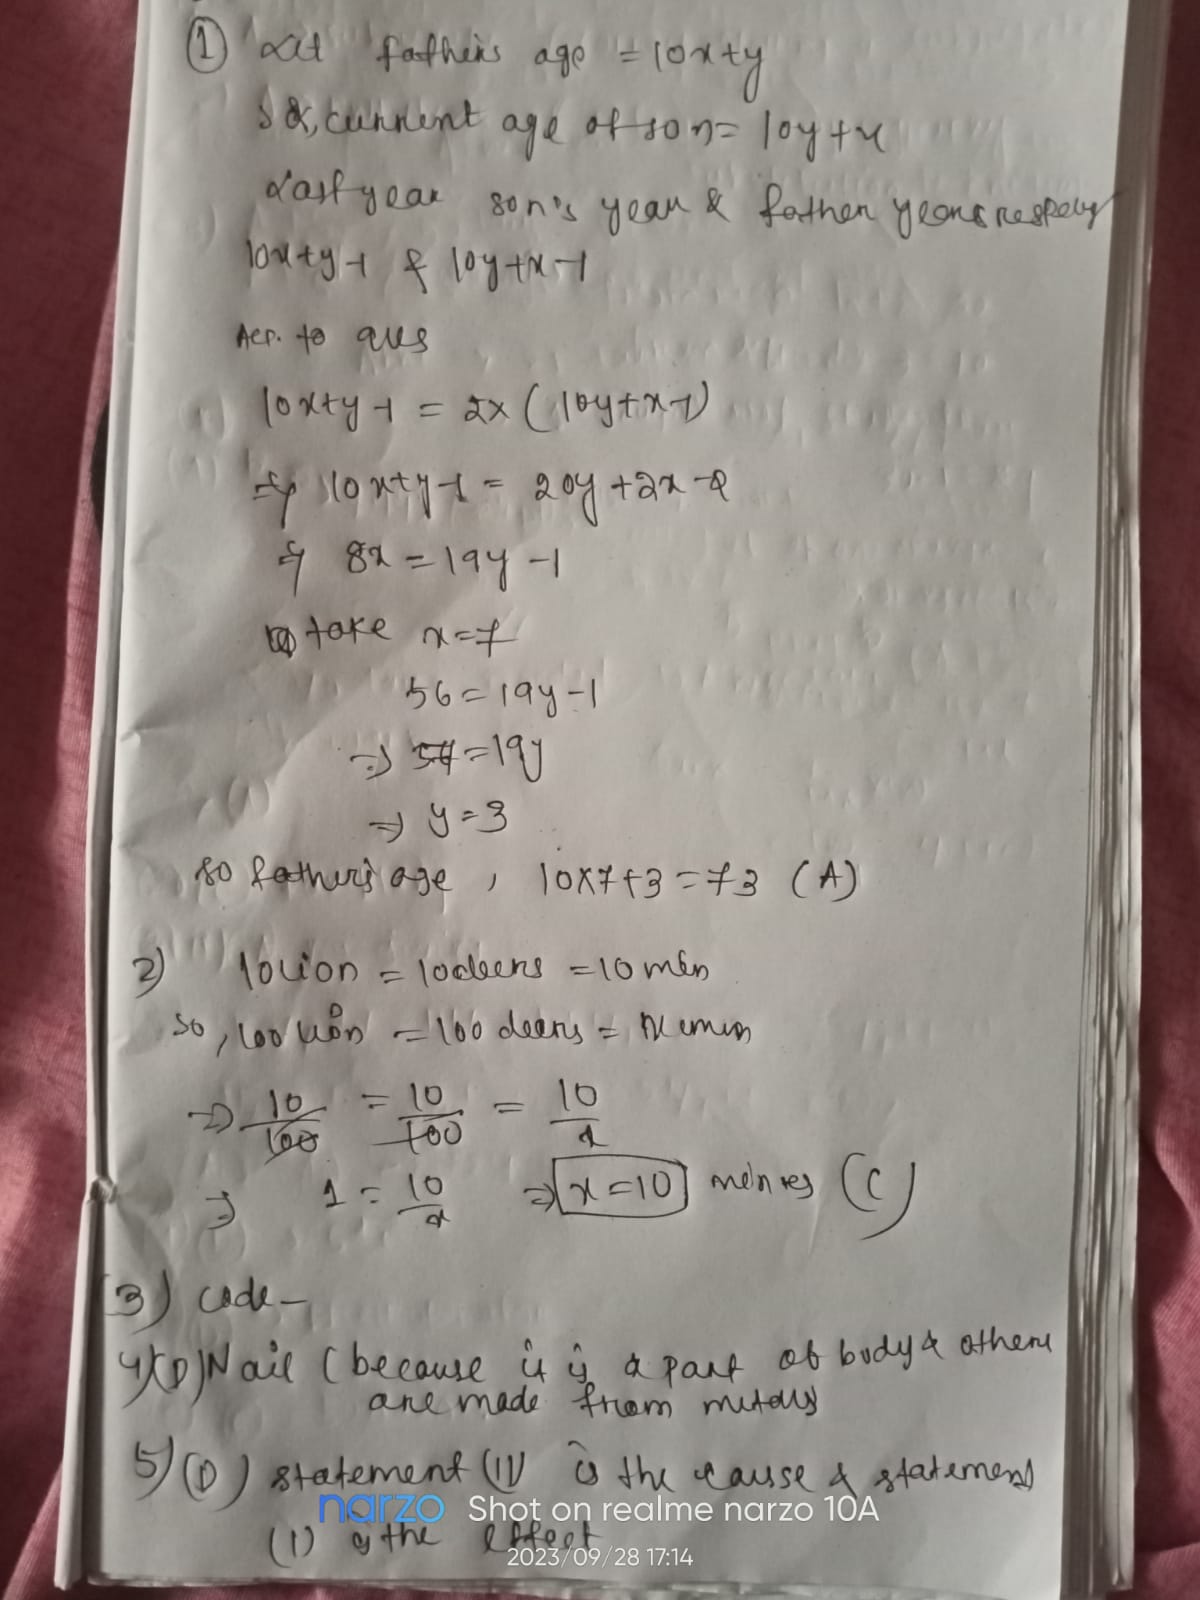 ① Let father's age = 10x+y
So, current age of son = 10y+x
Last year son's year & father years
10x+y-1 & 10y+x-1
Acr. to ques
10x+y-1 = 2x(10y+x-1)
⇒ 10x+y-1 = 20y+2x-2
⇒ 8x = 19y-1
take x=7
56 = 19y-1
⇒ = 19y
⇒ y=3
so father's age, 10x7+3=73 (A)
2) 10 lion = 10 deers = 10 min
so, 100 lion = 100 deers =
⇒ 10/100 = 10/100 = 10/x
⇒ 1 = 10/x ⇒ x=10 (C)
(3) code-
4) (D) Nail (because it is a part of body & others
are made from metals
5) (D) statement (II) is the cause & statement
(I) is the effect
narzo Shot on realme narzo 10A
2023/09/28 17:14